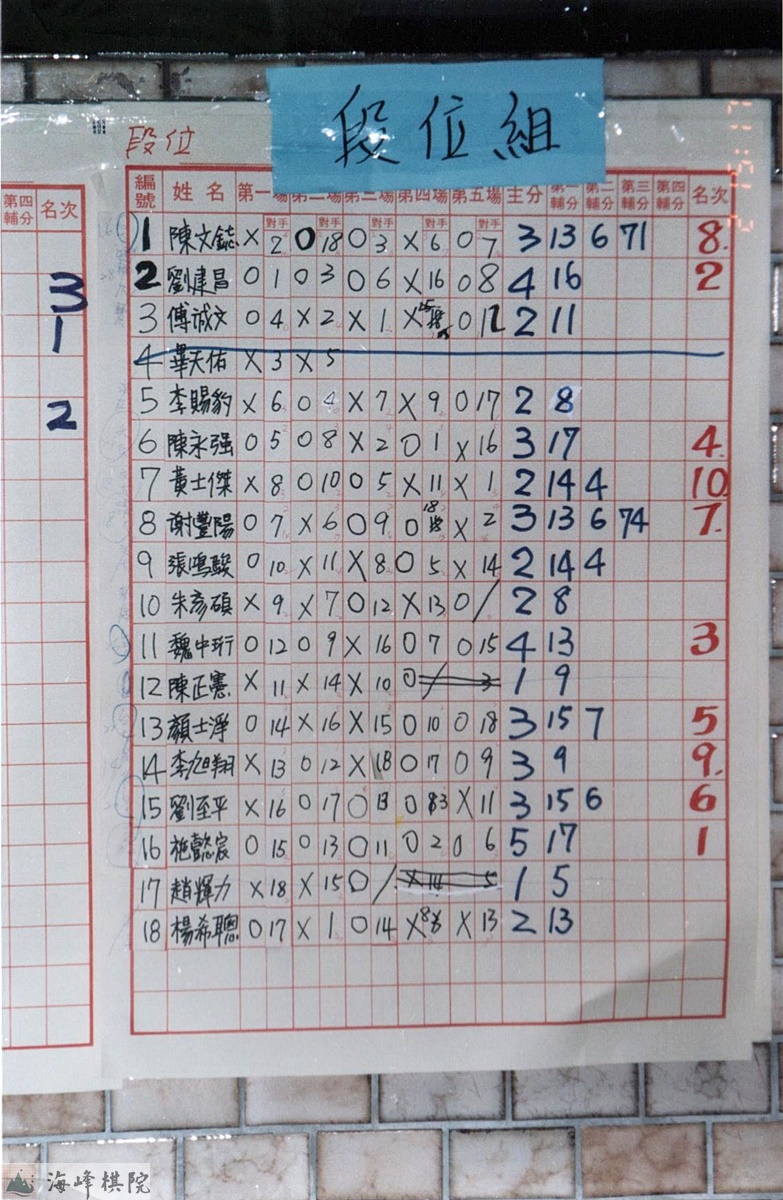 段位組
段位
第四輔分 名次
3
1
2
編號 姓名 第一場 第二場 第三場 第四場 第五場 主分 第一輔分 第二輔分 第三輔分 第四輔分 名次
對手 對手 對手 對手 對手
1 陳文鋕 X 2 O 18 O 3 X 6 O 7 3 13 6 71 8.
2 劉建昌 O 1 O 3 O 6 X 16 O 8 4 16 2
3 傅誠文 O 4 X 2 X 1 X 15 O 12 2 11
4 畢天佑 X 3 X 5
5 李賜豹 X 6 O 4 X 7 X 9 O 17 2 8
6 陳永强 O 5 O 8 X 2 O 1 X 16 3 17 4.
7 黃士傑 X 8 O 10 O 5 X 11 X 1 2 14 4 10
8 謝豐陽 O 7 X 6 O 9 O 18 X 2 3 13 6 74 7.
9 張鴻駿 O 10 X 11 X 8 O 5 X 14 2 14 4
10 朱彥碩 X 9 X 7 O 12 X 13 O / 2 8
11 魏中珩 O 12 O 9 X 16 O 7 O 15 4 13 3
12 陳正憲 X 11 X 14 X 10 O / 3 1 9
13 顏士淨 O 14 X 16 X 15 O 10 O 18 3 15 7 5
14 李旭翔 X 13 O 12 X 18 O 17 O 9 3 9 9.
15 劉至平 X 16 O 17 O 13 O 3 X 11 3 15 6 6
16 施懿宸 O 15 O 13 O 11 O 2 O 6 5 17 1
17 趙輝力 X 18 X 15 O / X 14 5 1 5
18 楊希聰 O 17 X 1 O 14 X 8 X 13 2 13
海峰棋院